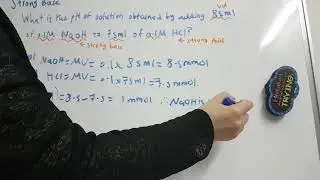 Strong base
What is the pH of solution obtained by adding 85ml
of 0.1M NaOH to 75ml of 0.1M HCl?
strong base strong Acid
NaOH = MV = 0.1 x 85ml = 8.5mmol
HCl = MV = 0.1 x 75ml = 7.5mmol
= 8.5 - 7.5 = 1 mmol ∴ NaOH is
TRYING